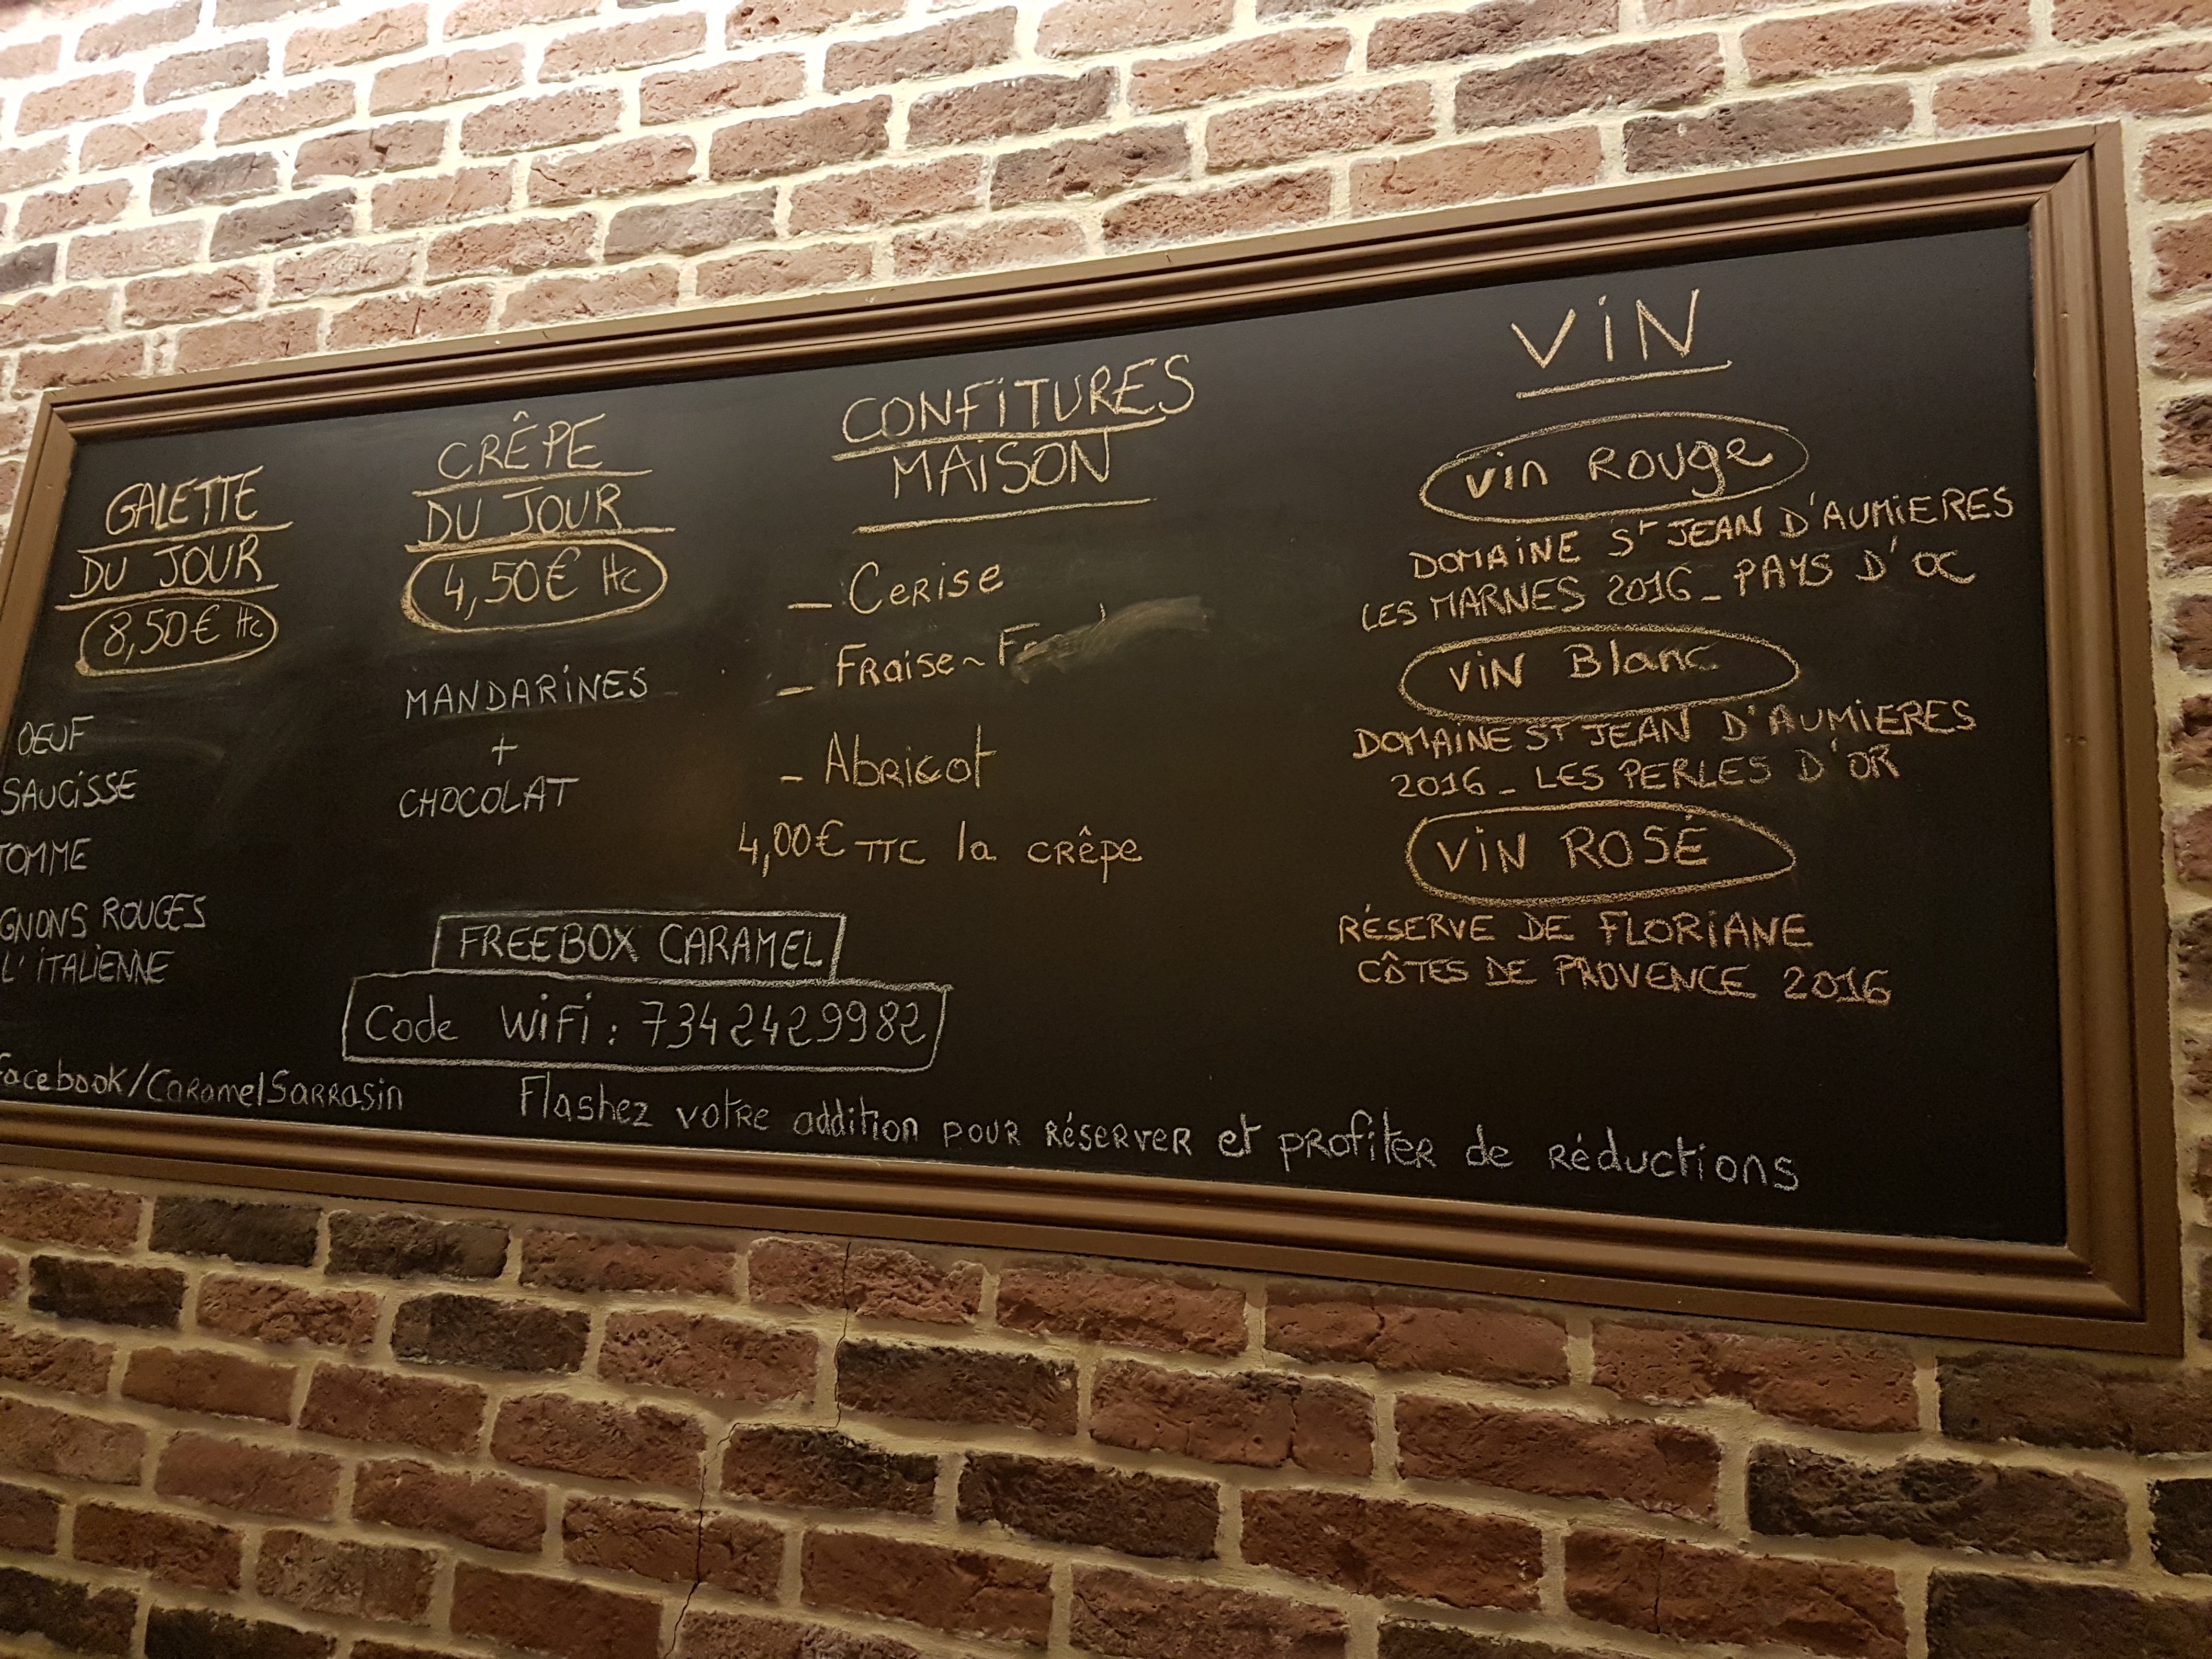 GALETTE
DU JOUR
8,50€ Hc
OEUF
SAUCISSE
TOMME
GNONS ROUGES
L'iTALiENNE
CRÊPE
DU JOUR
4,50€ Hc
MANDARiNES
+
CHOCOLAT
CONFiTURES
MAiSON
- Cerise
- Fraise~
- Abricot
4,00€ TTC la crêpe
ViN
Vin Rouge
DOMAiNE St JEAN D'AUMiERES
LES MARNES 2016 - PAYS D'OC
ViN Blanc
DOMAiNE ST JEAN D'AUMiERES
2016 - LES PERLES D'OR
ViN ROSÉ
RÉSERVE DE FLORiANE
CÔTES DE PROVENCE 2016
FREEBOX CARAMEL
Code WiFi : 7342429982
facebook/CaramelSarrasin
Flashez votre addition pour réserver et profiter de réductions